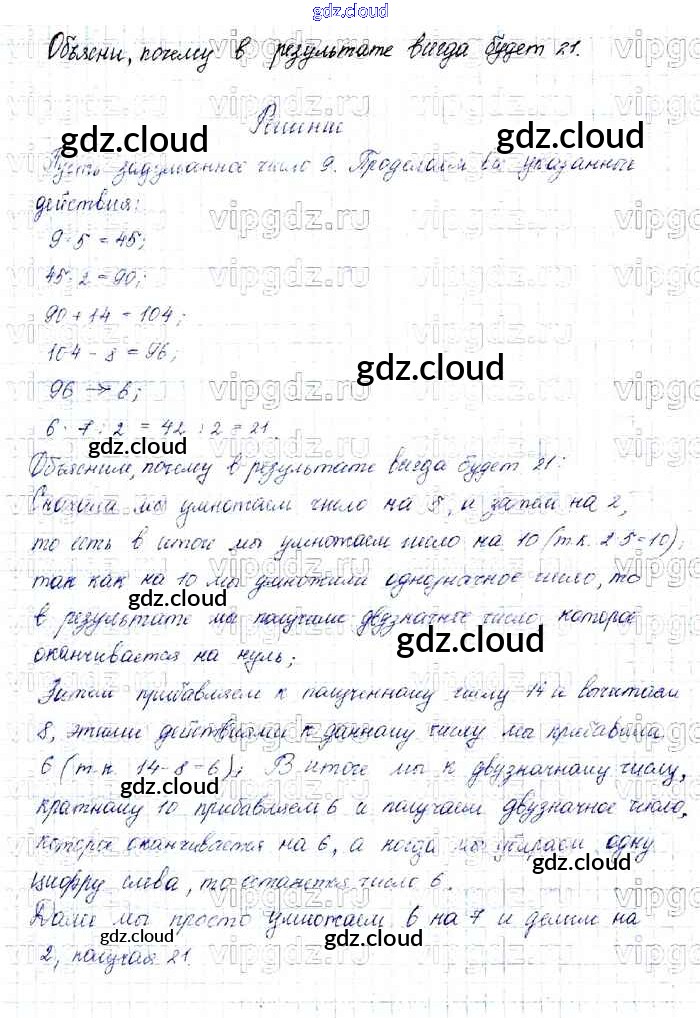 gdz.cloud
Объясни, почему в результате всегда будет 21.
Решение
Пусть задуманное число 9. Проделаем все указанные
действия:
9·5=45;
45·2=90;
90+14=104;
104-8=96;
96→6;
6·7:2=42:2=21
Объясним, почему в результате всегда будет 21:
Сначала мы умножаем число на 5, и затем на 2,
то есть в итоге мы умножаем число на 10 (т.к. 2·5=10);
так как на 10 мы умножили однозначное число, то
в результате мы получим двузначное число которое
оканчивается на нуль;
Затем прибавляем к полученному числу 14 и вычитаем
8, этими действиями к данному числу мы прибавили
6 (т.к. 14-8=6); В итоге мы к двузначному числу,
кратному 10 прибавляем 6 и получаем двузначное число,
которое оканчивается на 6, а когда мы убираем одну
цифру слева, то останется число 6.
Далее мы просто умножаем 6 на 7 и делим на
2, получая 21